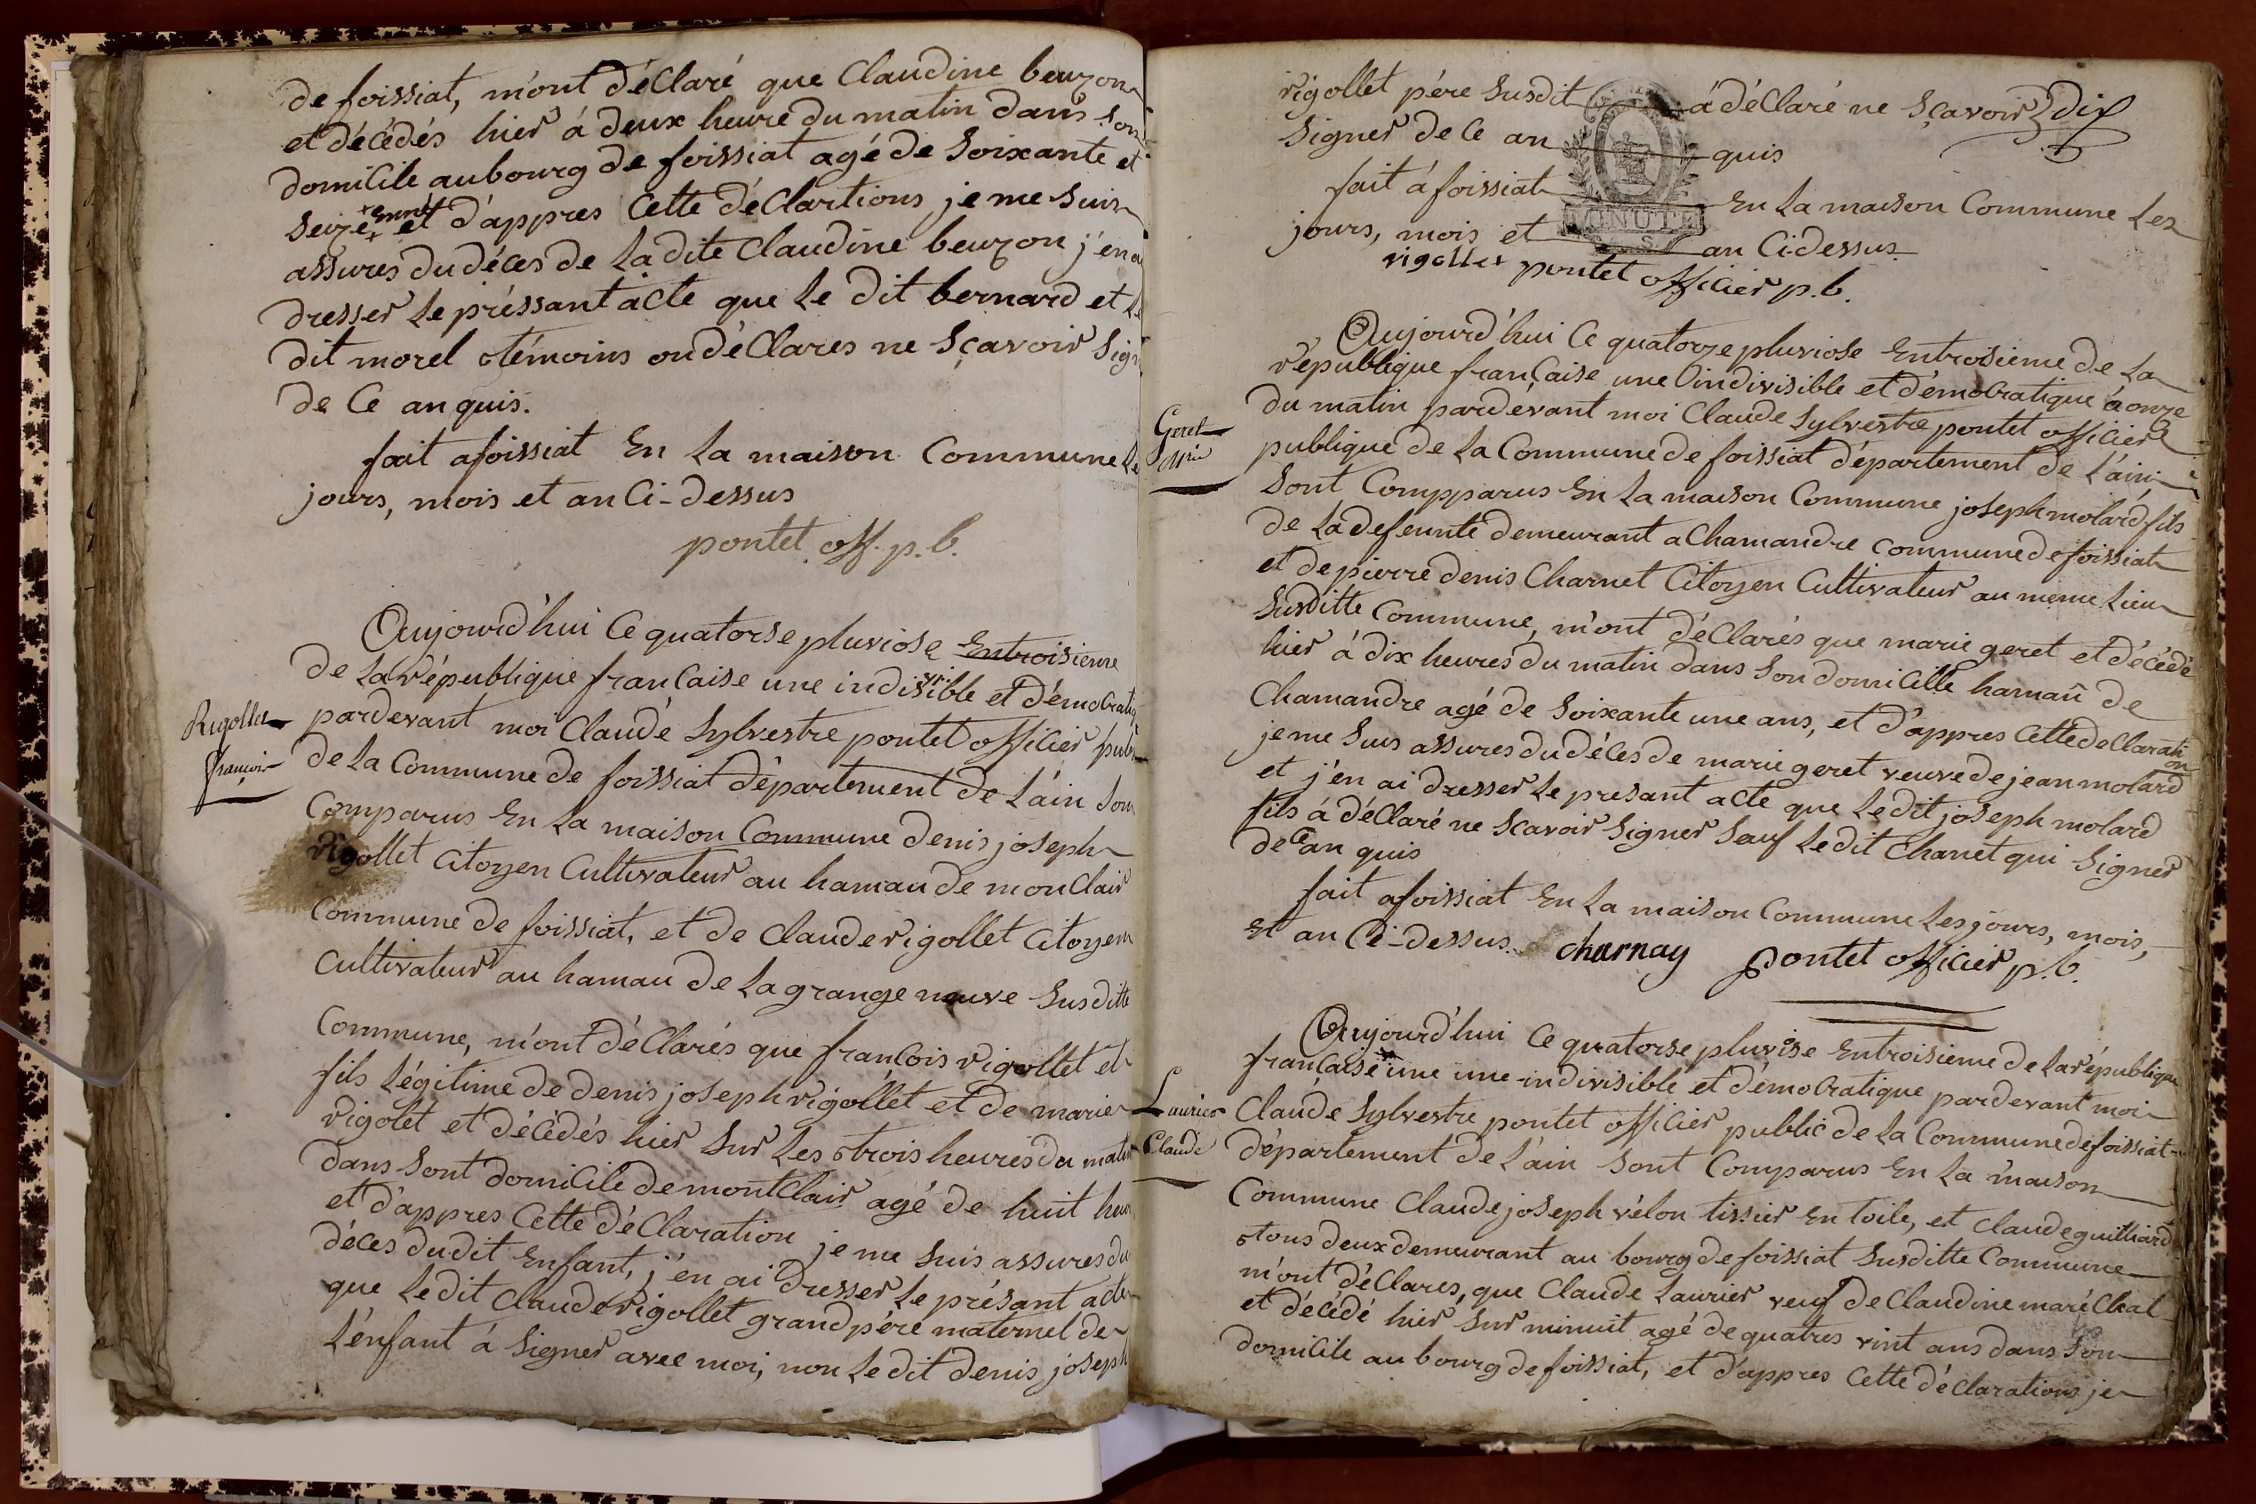 de foissiat, m'ont déClaré que Claudine beuzon
et décédés hier á deux heure du matin dans son
domiCile au bourg de foissiat agé de Soixante et
Seize et d'appres Cette déClartions je me suis
assures du déces de La dite Claudine beuzon j'en a
dresser Le préssant acte que Le dit bernard et Le
dit morel témoins on déClares ne Sçavoir Sign
de Ce an quis.
fait a foissiat En La maison Commune Le
jours, mois et an Ci-dessus
pontet off. p.b.
Aujourd'hui Ce quatorse pluviose Entroisieme
de La république française une indivisible et démocratiq
Rigollet
françois
pardevant moi Claude Sylvestre pontet officier publi
de La Commune de foissiat département de L'ain Son
Comparus En La maison Commune denis joseph
rigollet Citoyen Cultivateur au hamau de monClair
Commune de foissiat, et de Claude rigollet Citoyen
Cultivateur au hamau de La grange neuve Susditte
Commune, m'ont déClarés que françois rigollet et
fils Légitime de denis joseph rigollet et de marie
rigolet et décédés hier Sur Les trois heures du matin
dans Sont domiCile de montClair agé de huit heur
et d'appres Cette déClaration je me suis assures du
déces dudit Enfant, j'en ai dresser Le présant acte
que Le dit Claude rigollet grand pére maternel de
L'énfant á Signer avec moi, non Le dit denis joseph
rigollet pére Susdit á déClaré ne Sçavoir dix
Signer de Ce an quis
fait á foissiat En La maison Commune Les
MINUTE
jours, mois et an Ci dessus.
rigollet pontet officier p.b.
Aujourd'hui Ce quatorze pluviose Entrosieme de La
république française une indivisible et démocratique á onze
du matin pardévant moi Claude Sylvestre pontet officier
Geret
Mrie
publique de La Commune de foissiat département de L'ain
Sont Compparus En La maison Commune joseph molard fils
de La defeunte demeurant a Chamandre commune de foissiat
et de pierre denis Charnet Citoyen Cultivateur au meme Lieu
Susditte Commune, m'ont déClarés que marie geret et décédé
hier á dix heures du matin dans Son domiCille hamau de
Chamandre agé de Soixante une ans, et d'appres Cette deClaration
je me Suis assures du déCes de marie geret veuve de jean molard
et j'en ai dresser Le presant acte que Le dit joseph molard
fils á déClaré ne Scavoir Signer Sauf Le dit Chanet qui Signer
de Ce an quis
fait a foissiat En La maison Commune Les jours, mois,
Et an Ci-dessus. charnay pontet officier p.b.
Aujourd'hui Ce quatorse pluviose Entroisieme de La république
française une une indivisible et démoCratique pardevant moi
Laurier
Claude
Claude Sylvestre pontet officier public de La Commune de foissiat
département de L'ain Sont Comparus En La maison
Commune Claude joseph vélon tissier En toile, et Claude guilliard
tous deux demeurant au bourg de foissiat Susditte Commune
m'ont déClares, que Claude Laurier veuf de Claudine maréChal
et décédé hier Sur minuit agé de quatres vint ans dans Son
domicile au bourg de foissiat, et d'appres Cette déClarations je